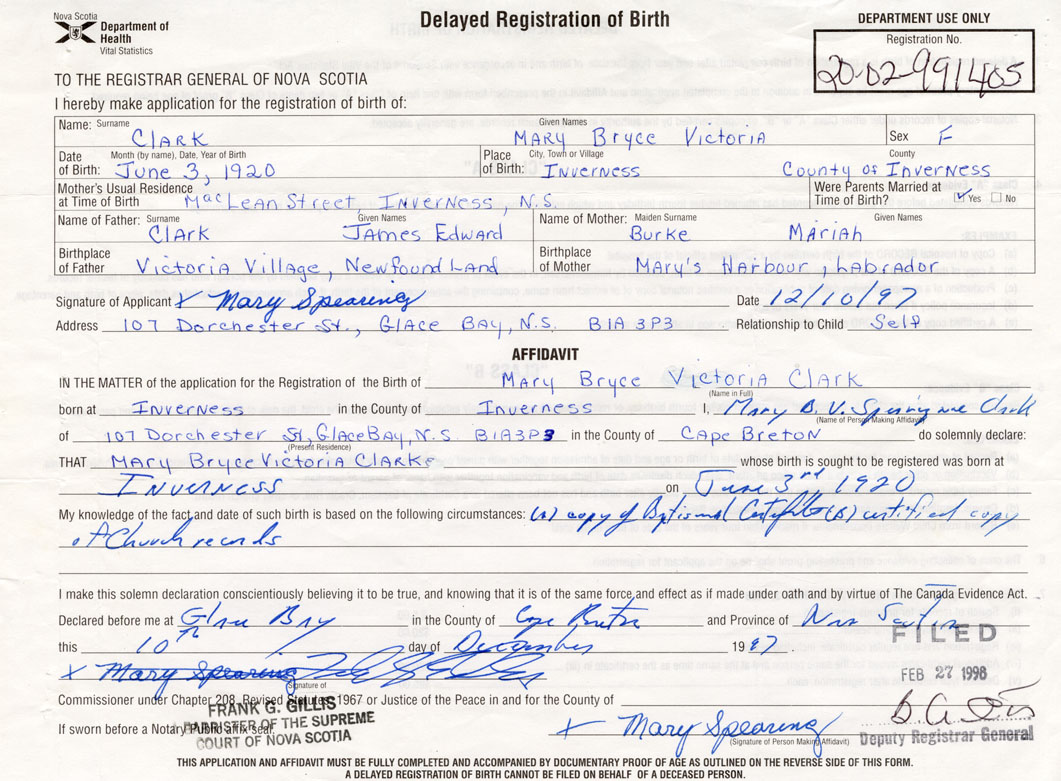 Nova Scotia
Department of
Health
Vital Statistics
Delayed Registration of Birth
DEPARTMENT USE ONLY
Registration No.
20-02-991405
TO THE REGISTRAR GENERAL OF NOVA SCOTIA
I hereby make application for the registration of birth of:
Name: Surname Given Names
CLARK MARY Bryce Victoria Sex F
Date of Birth: Month (by name), Date, Year of Birth June 3, 1920 Place of Birth: City, Town or Village Inverness County County of Inverness
Mother's Usual Residence at Time of Birth MacLean Street Inverness, N.S. Were Parents Married at Time of Birth? ☑ Yes ☐ No
Name of Father: Surname Given Names Name of Mother: Maiden Surname Given Names
Clark James Edward Burke Mariah
Birthplace of Father Victoria Village, Newfoundland Birthplace of Mother Mary's Harbour, Labrador
Signature of Applicant x Mary Spearing Date 12/10/97
Address 107 Dorchester St., Glace Bay, N.S. B1A 3P3 Relationship to Child Self
AFFIDAVIT
IN THE MATTER of the application for the Registration of the Birth of Mary Bryce Victoria Clark
(Name in Full)
born at Inverness in the County of Inverness I, Mary B. V. Spearing
(Name of Person Making Affidavit)
of 107 Dorchester St, Glace Bay, N.S. B1A3P3 in the County of Cape Breton do solemnly declare:
(Present Residence)
THAT Mary Bryce Victoria Clarke whose birth is sought to be registered was born at
Inverness on June 3rd 1920
My knowledge of the fact and date of such birth is based on the following circumstances: (A) copy of Baptismal Certificate (B) certified copy
of Church records
I make this solemn declaration conscientiously believing it to be true, and knowing that it is of the same force and effect as if made under oath and by virtue of The Canada Evidence Act.
Declared before me at Glace Bay in the County of Cape Breton and Province of Nova Scotia
FILED
this 10th day of December 1997
x Mary Spearing
FEB 27 1998
Signature of
Commissioner under Chapter 208, Revised Statutes 1967 or Justice of the Peace in and for the County of
FRANK G. GILLIS
If sworn before a Notary Public affix seal.
BARRISTER OF THE SUPREME
COURT OF NOVA SCOTIA
x Mary Spearing
(Signature of Person Making Affidavit)
Deputy Registrar General
THIS APPLICATION AND AFFIDAVIT MUST BE FULLY COMPLETED AND ACCOMPANIED BY DOCUMENTARY PROOF OF AGE AS OUTLINED ON THE REVERSE SIDE OF THIS FORM.
A DELAYED REGISTRATION OF BIRTH CANNOT BE FILED ON BEHALF OF A DECEASED PERSON.